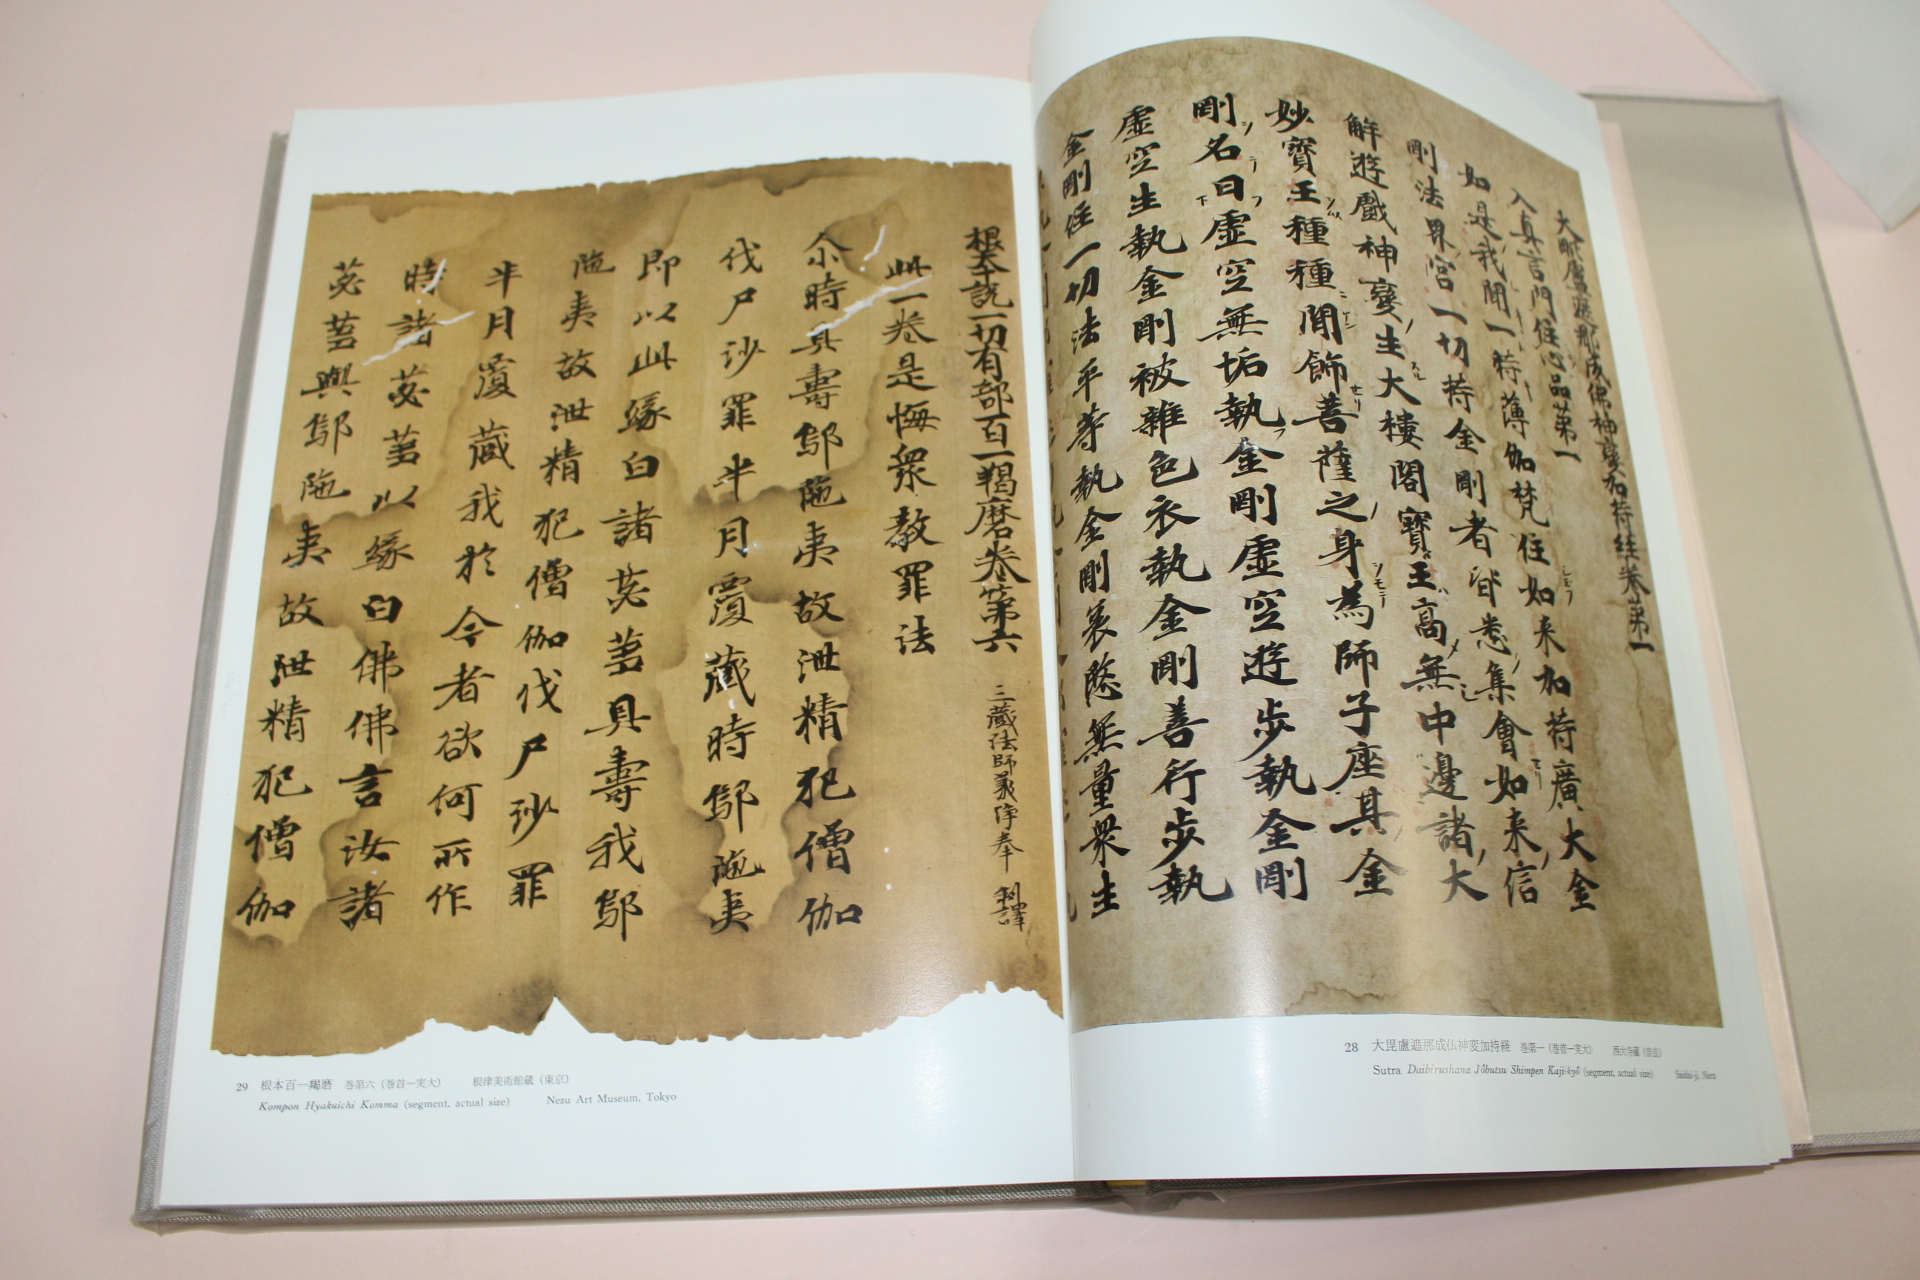 大毗盧遮那成佛神變加持經卷第一
入真言門住心品第一
如是我聞一時薄伽梵住如来加持廣大金
剛法界宮一切持金剛者皆悉集會如来信
解遊戲神變生大樓閣寶王高無中邊諸大
妙寶王種種間飾菩薩之身為師子座其金
剛名曰虛空無垢執金剛虛空遊步執金剛
虛空生執金剛被雜色衣執金剛善行步執
金剛住一切法平等執金剛哀愍無量衆生
28 大毘盧遮那成仏神変加持経 巻第一（巻首一実大） 西大寺蔵（奈良）
Sutra Daibirushana Jōbutsu Shimpen Kaji-kyō (segment, actual size) Saidai-ji, Nara
根本說一切有部百一羯磨卷第六 三藏法師義淨奉 制譯
此一卷是悔衆教罪法
尒時具壽鄔陁夷故泄精犯僧伽
伐尸沙罪半月覆藏時鄔陁夷
即以此緣白諸苾芻具壽我鄔
陁夷故泄精犯僧伽伐尸沙罪
半月覆藏我於今者欲何所作
時諸苾芻以緣白佛佛言汝諸
苾芻與鄔陁夷故泄精犯僧伽
29 根本百一羯磨 巻第六（巻首一実大） 根津美術館蔵（東京）
Kompon Hyakuichi Komma (segment, actual size) Nezu Art Museum, Tokyo